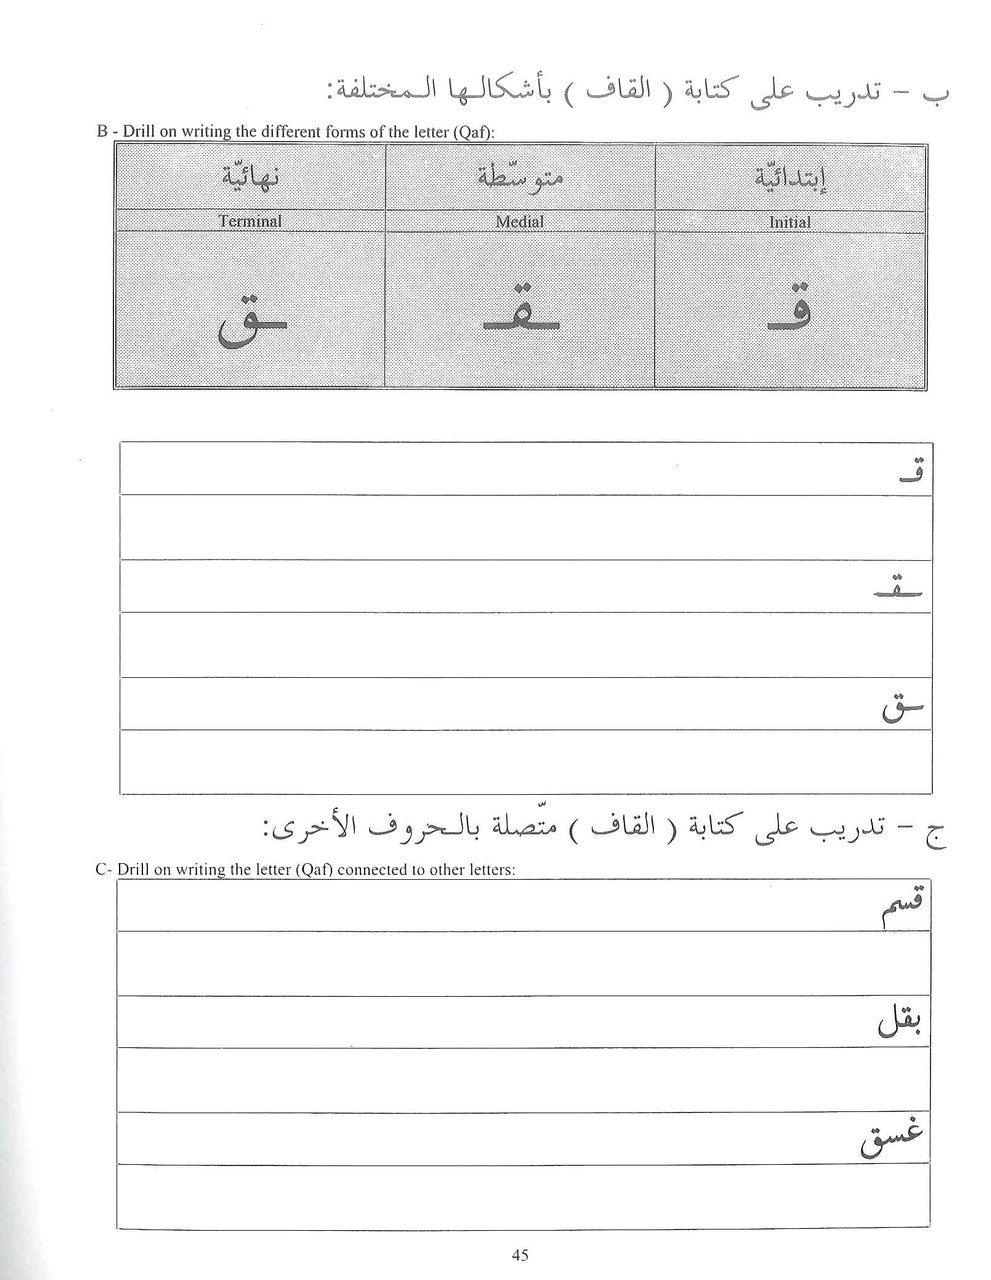 ب - تدريب على كتابة ( القاف ) بأشكالـها الـمختلفة:
B - Drill on writing the different forms of the letter (Qaf):
إبتدائيّة متوسّطة نهائيّة
Initial Medial Terminal
قـ ـقـ ـق
قـ
ـقـ
ـق
ج - تدريب على كتابة ( القاف ) متّصلة بالـحروف الأخرى:
C- Drill on writing the letter (Qaf) connected to other letters:
قسم
بقل
غسق
45